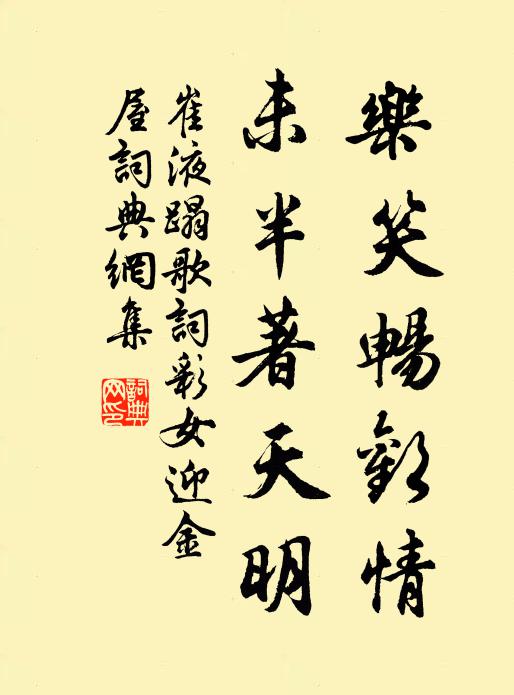 樂笑暢歡情
未半著天明
崔液蹋歌詞彩女迎金
屋詞典網集
詞典
网印